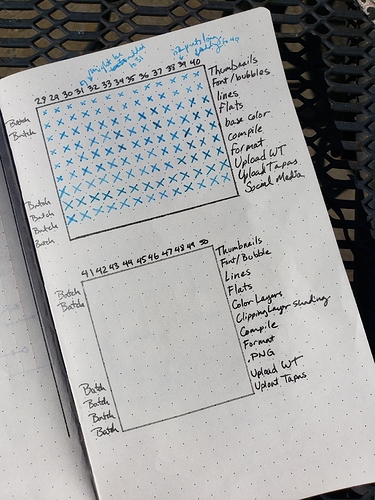 might be
28 29 30 31 32 33 34 35 36 37 38 39 40
Thumbnails
Font/bubbles
lines
flats
base color
compile
format
Upload WT
Upload Tapas
Social Media
Batch
Batch
Batch
Batch
Batch
Batch
41 42 43 44 45 46 47 48 49 50
Thumbnails
Font/Bubble
Lines
Flats
Color Layers
Clipping Layer shading
Compile
Format
.PNG
Upload WT
Upload Tapas
Batch
Batch
Batch
Batch
Batch
Batch